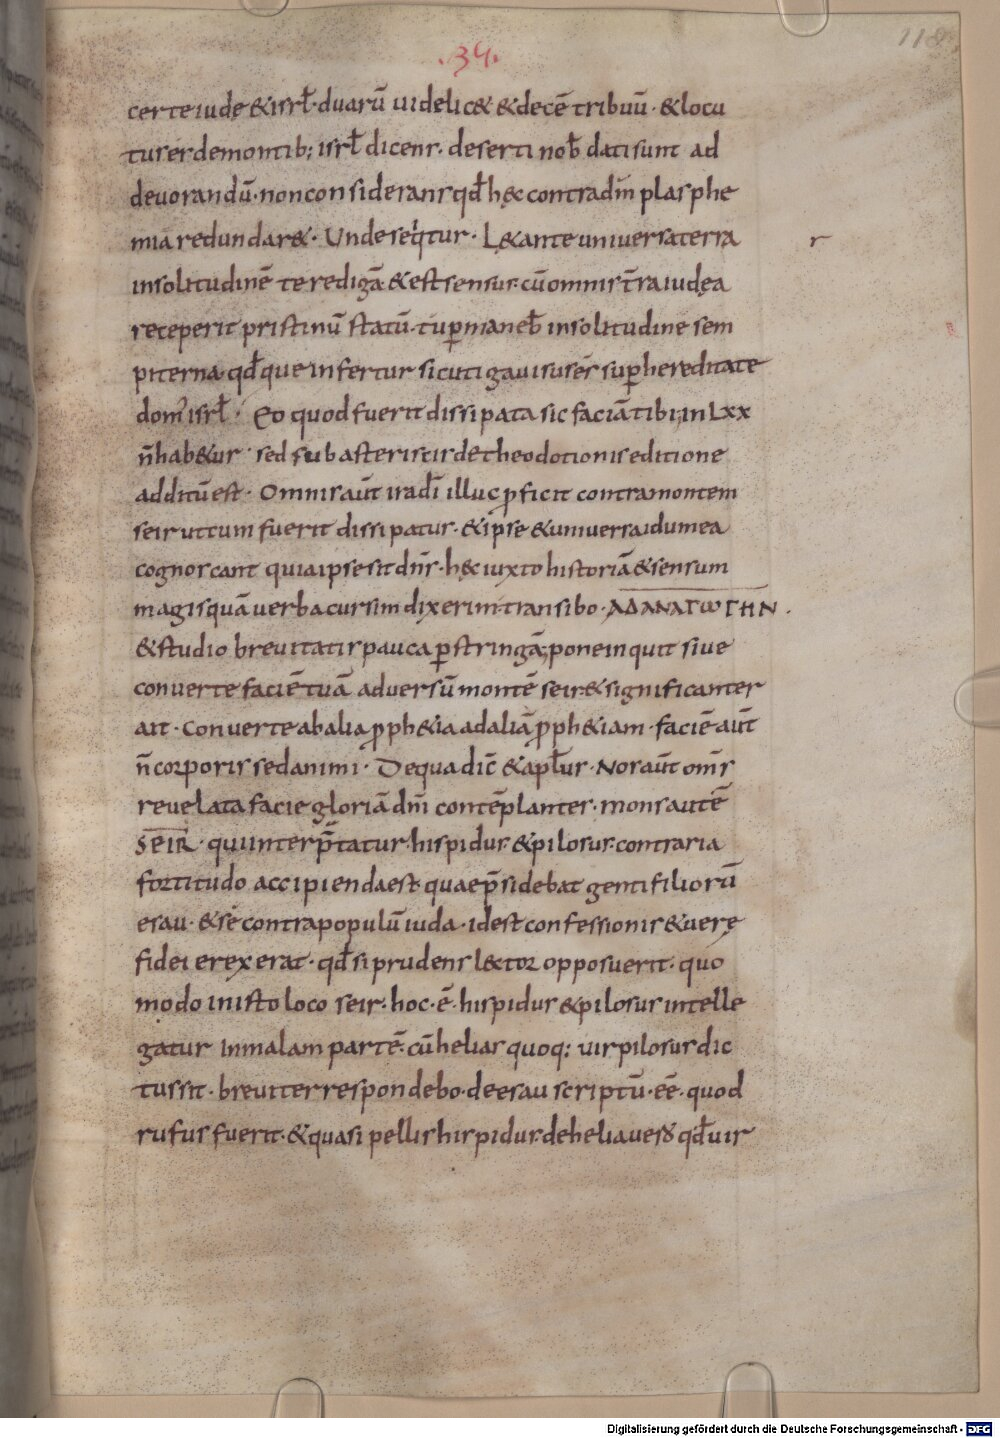 118
.34.
certe iudę & isrł· duarū uidelic& & decē tribuū· & locu
tus es de montib; isrł dicens· deserti nob̄ dati sunt ad
deuorandū· non considerans qđ hęc contra dn̄m plasphe
mia redundar&· Unde seq̇tur· L&ante uniuersa terra
r
in solitudinē te redigā & est sensus· cū omnis t̄ra iudęa
receperit pristinū statū· tu ꝑmaneb̄ in solitudine sem
piterna· qđque infertur sicuti gauisus es suꝑ hereditatē
dom' isrł· Eo quod fuerit dissipata sic faciā tibi; in Lxx
n̄ hab&ur· sed sub asteriscis de theodotionis editione
additū est· Omnis aūt ira dī illuc ꝓficit contra montem
seir ut cum fuerit dissipatus· & ipse & uniuersa idumea
cognoscant quia ipse sit dn̄s· hęc iuxto historiā & sensum
magis quā uerba cursim dixerim· transibo· ΑΔΑΝΑΓΩΓΗΝ·
& studio breuitatis pauca ꝑstringā; pone inquit siue
conuerte faciē tuā aduersū montē seir· & significanter
ait· Conuerte ab alia ꝓph&ia ad aliā ꝓph&iam· faciē aūt
n̄ corporis sed animi· De qua dic̄ & apłus· Nos aūt om̄s
reuelata facie gloriā dn̄i contēplantes· mons autē
SEIR· qui interp̄tatur hispidus & pilosus· contraria
fortitudo accipienda est· quae p̄sidebat genti filiorū
esau· & se contra populū iuda· id est confessionis & uerę
fidei erexerat· qđ si prudens lector opposuerit· quo
modo in isto loco seir· hoc· ē· hispidus & pilosus intelle
gatur in malam partē· cū helias quoq; uir pilosus dic
tus sit· breuiter respondebo· de esau scriptū· eē· quod
rufus fuerit· & quasi pellis hispidus· de helia uero qđ uir
Digitalisierung gefördert durch die Deutsche Forschungsgemeinschaft - DFG